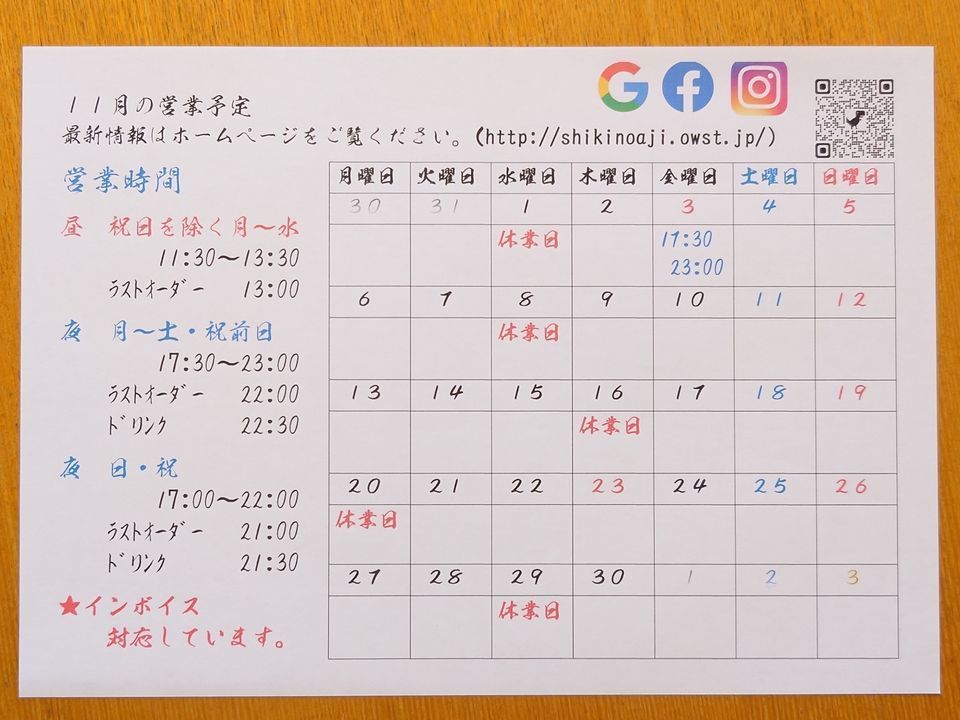 １１月の営業予定
最新情報はホームページをご覧ください。(http://shikinoaji.owst.jp/)
営業時間
昼　祝日を除く月〜水
11:30〜13:30
ﾗｽﾄｵｰﾀﾞｰ 13:00
夜　月〜土・祝前日
17:30〜23:00
ﾗｽﾄｵｰﾀﾞｰ 22:00
ﾄﾞﾘﾝｸ 22:30
夜　日・祝
17:00〜22:00
ﾗｽﾄｵｰﾀﾞｰ 21:00
ﾄﾞﾘﾝｸ 21:30
★インボイス
対応しています。
月曜日 火曜日 水曜日 木曜日 金曜日 土曜日 日曜日
30 31 1 2 3 4 5
休業日 17:30
23:00
6 7 8 9 10 11 12
休業日
13 14 15 16 17 18 19
休業日
20 21 22 23 24 25 26
休業日
27 28 29 30 1 2 3
休業日